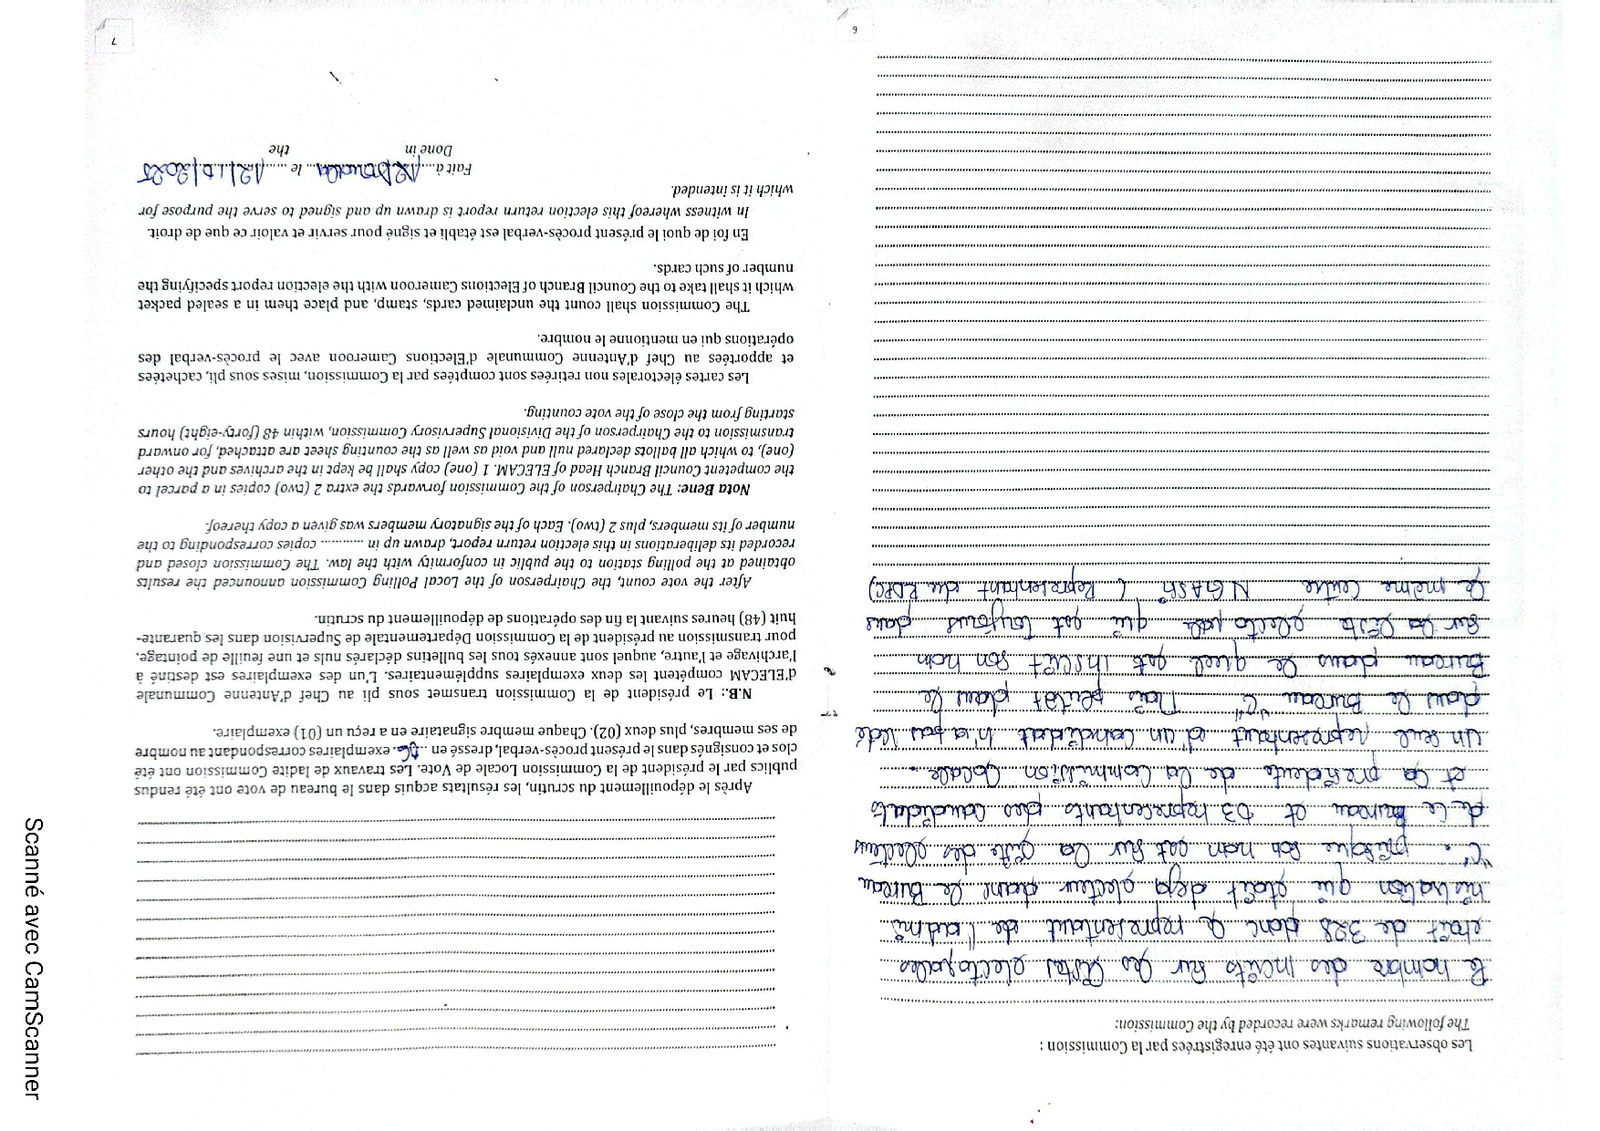 Les observations suivantes ont été enregistrées par la Commission :
The following remarks were recorded by the Commission:
le nombre des inscrits sur les listes electorales
etait de 328 donc le representant de l'admi
nistration qui etait deja electeur dans le Bureau
"C". puisque son nom est sur la liste des electeurs
de ce Bureau et 03 representants des candidats
et la presidente de la Commission Locale.
un seul representant d'un candidat n'a pas voté
dans le Bureau "C" mais plutôt dans le
Bureau dans le quel est inscrit son nom
sur la liste electorale qui est toujours dans
le même centre (Representant du RDPC)
6
Après le dépouillement du scrutin, les résultats acquis dans le bureau de vote ont été rendus
publics par le président de la Commission Locale de Vote. Les travaux de ladite Commission ont été
clos et consignés dans le présent procès-verbal, dressé en ........ exemplaires correspondant au nombre
de ses membres, plus deux (02). Chaque membre signataire en a reçu un (01) exemplaire.
N.B.: Le président de la Commission transmet sous pli au Chef d'Antenne Communale
d'ELECAM compétent les deux exemplaires supplémentaires. L'un des exemplaires est destiné à
l'archivage et l'autre, auquel sont annexés tous les bulletins déclarés nuls et une feuille de pointage,
pour transmission au président de la Commission Départementale de Supervision dans les quarante-
huit (48) heures suivant la fin des opérations de dépouillement du scrutin.
After the vote count, the Chairperson of the Local Polling Commission announced the results
obtained at the polling station to the public in conformity with the law. The Commission closed and
recorded its deliberations in this election return report, drawn up in ............ copies corresponding to the
number of its members, plus 2 (two). Each of the signatory members was given a copy thereof.
Nota Bene: The Chairperson of the Commission forwards the extra 2 (two) copies in a parcel to
the competent Council Branch Head of ELECAM. 1 (one) copy shall be kept in the archives and the other
(one), to which all ballots declared null and void as well as the counting sheet are attached, for onward
transmission to the Chairperson of the Divisional Supervisory Commission, within 48 (forty-eight) hours
starting from the close of the vote counting.
Les cartes électorales non retirées sont comptées par la Commission, mises sous pli, cachetées
et apportées au Chef d'Antenne Communale d'Elections Cameroon avec le procès-verbal des
opérations qui en mentionne le nombre.
The Commission shall count the unclaimed cards, stamp, and place them in a sealed packet
which it shall take to the Council Branch of Elections Cameroon with the election report specifying the
number of such cards.
En foi de quoi le présent procès-verbal est établi et signé pour servir et valoir ce que de droit.
In witness whereof this election return report is drawn up and signed to serve the purpose for
which it is intended.
Fait à .... Douala .... le ...... 12/10/2025
Done in the
7
Scanné avec CamScanner